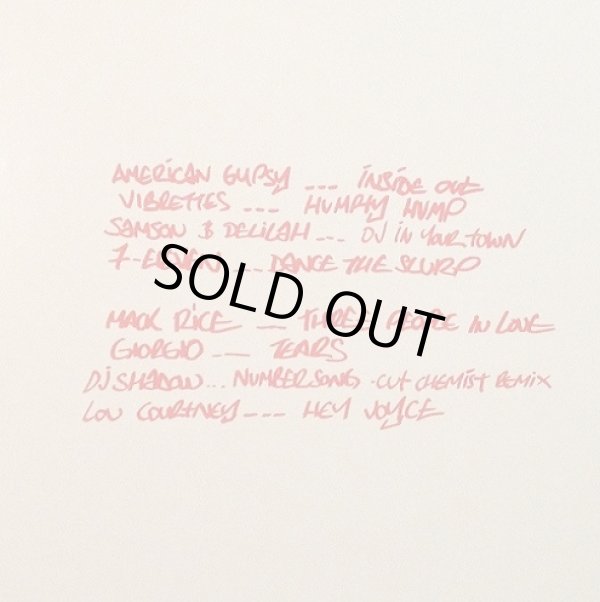 AMERICAN GYPSY --- INSIDE OUT
VIBRETTES --- HUMPTY HUMP
SAMSON & DELILAH --- DJ IN YOUR TOWN
7-ELEVEN --- DANCE THE SLURP
SOLD OUT
MACK RICE -- THREE PEOPLE IN LOVE
GIORGIO --- TEARS
DJ SHADOW... NUMBER SONG - CUT CHEMIST REMIX
LOU COURTNEY --- HEY JOYCE